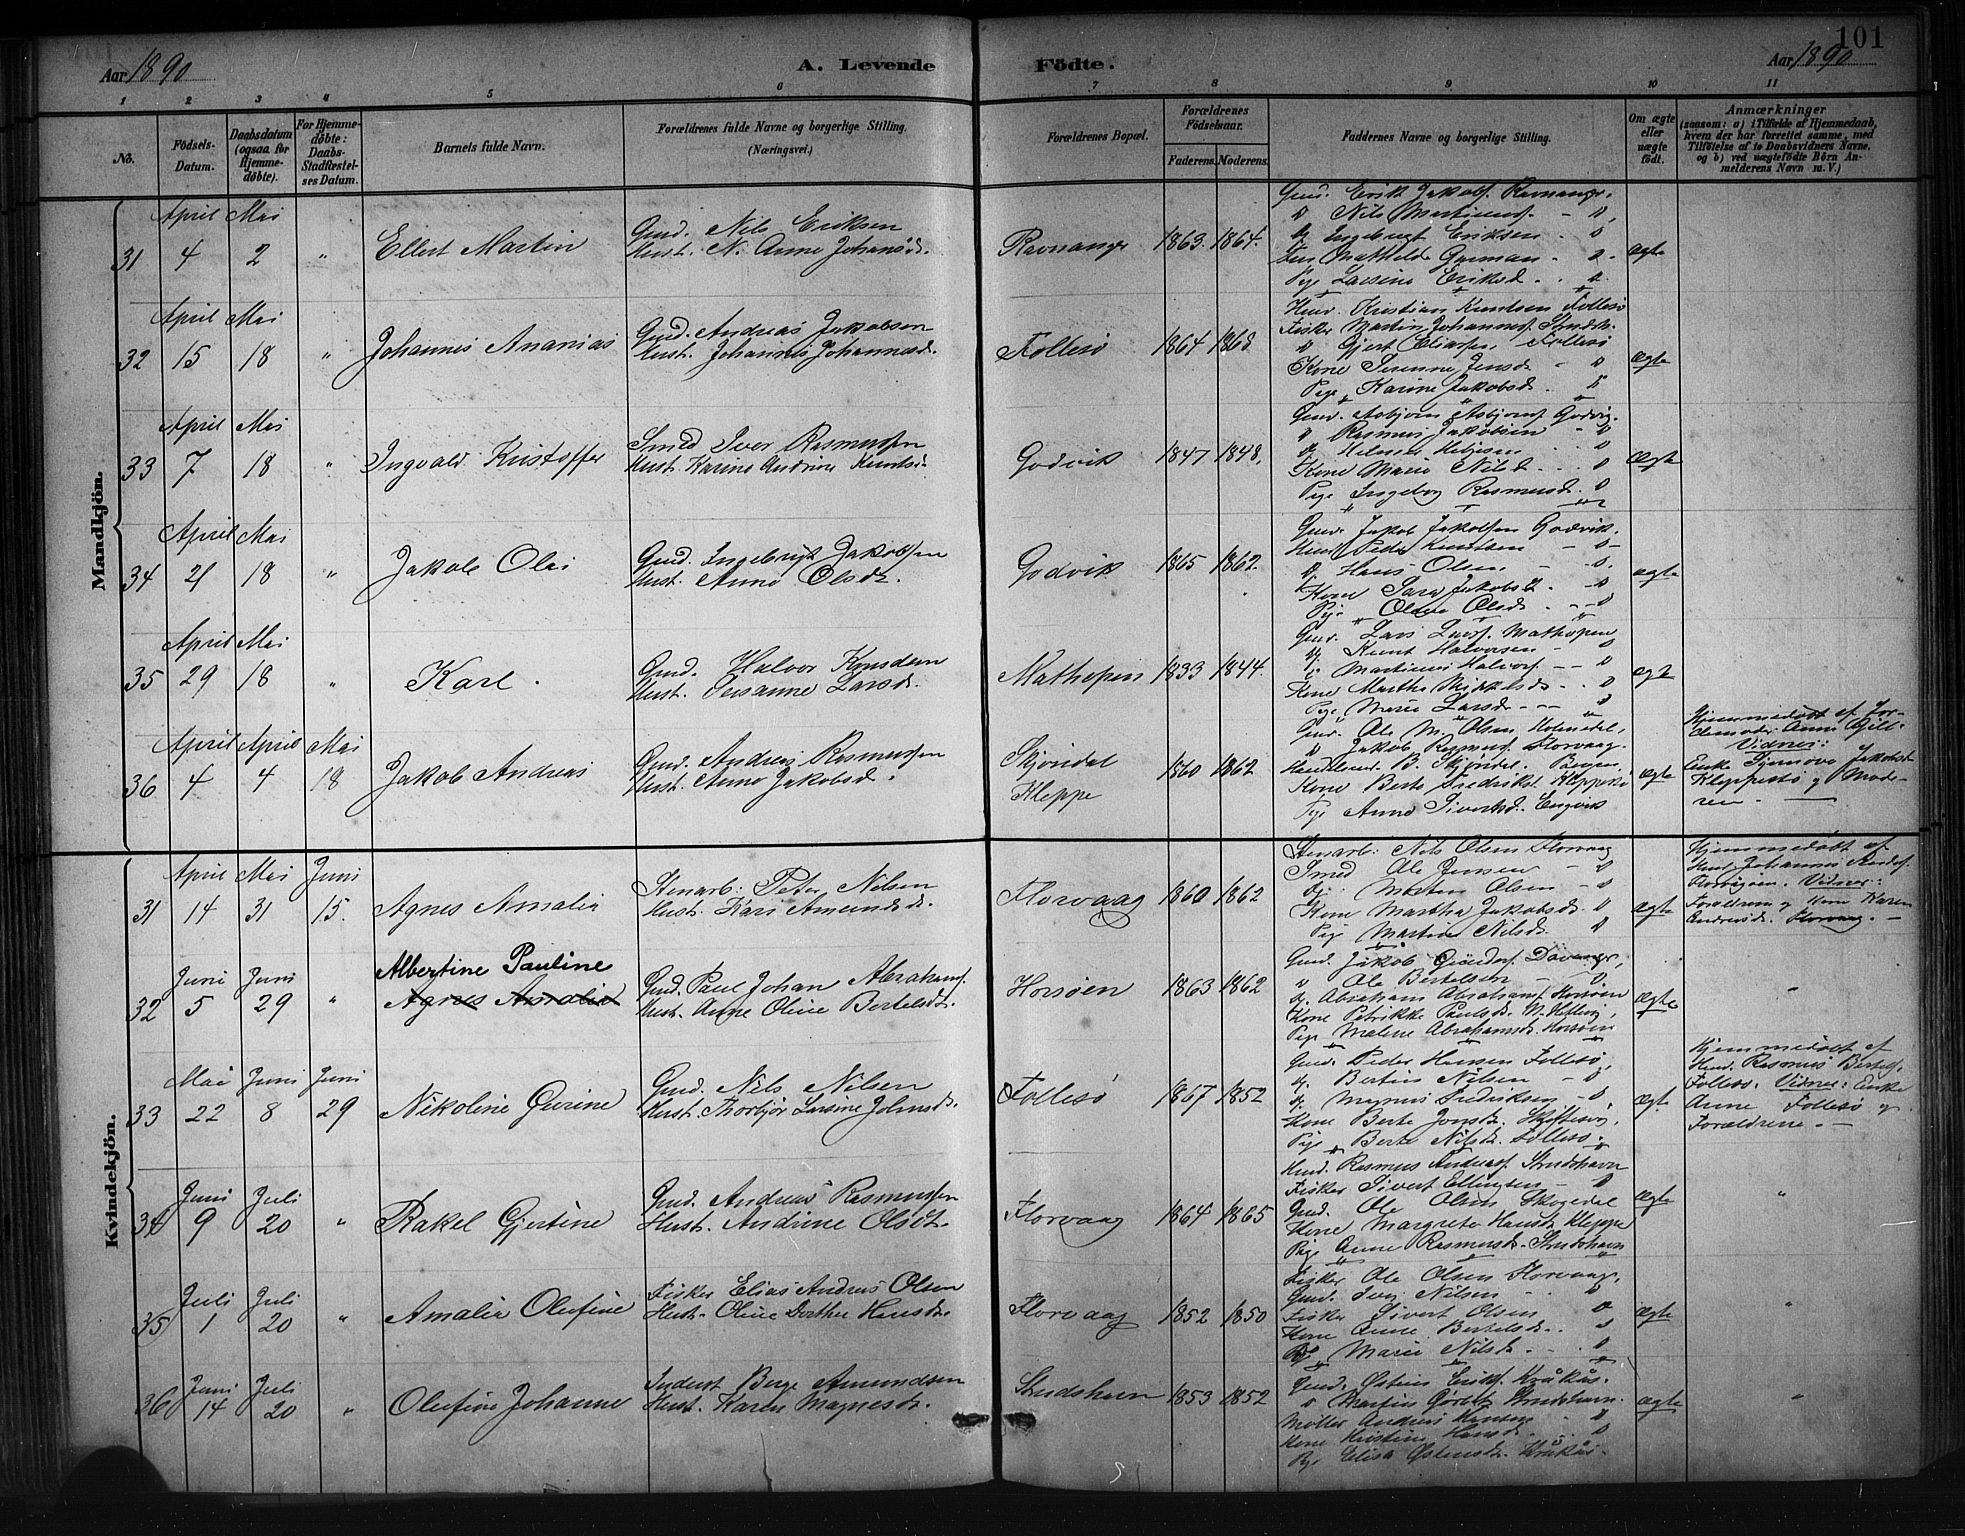 101
Aar 1890
A. Levende Födte.
Aar 1890
1 2 3 4 5 6 7 8 9 10 11
No.
Födsels-Datum.
Daabsdatum (ogsaa for Hjemme-döbte).
For Hjemme-döbte: Daabs-Stadfæstel-ses Datum.
Barnets fulde Navn.
Forældrenes fulde Navne og borgerlige Stilling. (Næringsvei.)
Forældrenes Bopæl.
Forældrenes Födselsaar.
Faderens. Moderens.
Faddernes Navne og borgerlige Stilling.
Om ægte eller uægte födt.
Anmærkninger
(saasom: a) i Tilfælde af Hjemmedaab, hvem der har forrettet samme, med Tilföielse af to Daabsvidners Navne, og b) ved uægtefödte Börn An-melderens Navn m. V.)
Mandkjön.
31 April 4 Mai 2 " Ellert Martin
Gmd. Nils Eriksen
Hust. N. Anna Johansd.
Ravnanger 1863. 1864.
Gmd. Erik Jakobs. Ravnanger.
" Nils Martinus. - "
" Ingebrigt Eriksen - "
Mathilde Garman - "
Pige Larsine Eriksd. - "
ægte
32 April 15 Mai 18 " Johannes Ananias
Gmd. Andreas Jakobsen
Hust. Johanna Johannesd.
Follesö 1864 1868
Kristian Knutsen Follesö
Fisker Martin Johannes.
" Gjert Eliassen Follesö
Kone Serenne Jensd. - "
Pige Karine Jakobsd. "
Ægte
33 April 7 Mai 18 " Ingvald Kristoffer
Smed Iver Rasmussen
Hust. Karine Andrea Knutsd.
Godvik 1847 1848.
Gmd. Asbjörn Asbjörns. Godvig.
" Rasmus Jakobsen "
" Helmer "
Kone Marie Nilsd. - "
Pige Ingeborg Rasmusd. "
Ægte
34 April 21 Mai 18 " Jakob Olai
Gmd. Ingebrigt Jakobsen
Hust. Anna Olsdt.
Godvik 1865 1862.
Gmd. Jakob Jakobsen Godvik.
Peder Knutsen - "
" Hans Olsen - "
Kone Sara Jakobsd. - "
Pige Oline Olsd. - "
ægte
35 April 29 Mai 18 " Karl.
Gmd. Halvor Knudsen
Hust. Susanne Larsd.
Mathopen 1833 1844.
Gmd. Lars Lars. Mathopen
" Knut Halvorsen - "
" Martinus Halvors. - "
Kone Martha Mikkelsd. - "
Pige Marie Larsd. - "
ægte
36 April 4 April 4 Mai 18 Jakob Andreas
Gmd. Andreas Rasmussen
Hust. Anna Jakobsd.
Skjöndal
Kleppe
1860 1862
Gmd. Ole M. Olsen
" Jakob Rasmus. Florvaag.
B. Skjöndal. Bergen
Kone Berte Fredriksd. Kleppesö
Pige Anna Sivertsd. Engvik
Ægte
Hjemmedöbt af Jor-
demoder Anna
Vidner:
Enke Synnöva Jakobsd
Kleppestö og Mode-
ren. -
Kvindekjön.
31 April 14 Mai 31 Juni 15. Agnes Amalia
Stenarb: Peter Nilsen
Hust. Kari Amundsd.
Florvaag 1860 1862
Stenarb: Nils Olsen Florvaag
Smed Ole Jensen - "
Martin Olsen - "
Kone Martha Jakobsd. "
Pige Martine Nilsd. "
Ægte
Hjemmedöbt af
Johannes
Vidner:
Forældrene og Kone Karen
Andreasd. Florvaag. -
32 Juni 5 Juni 29 " Albertine Pauline
Agnes Amalia
Gmd. Paul Johan Abrahams.
Hust. Anne Oline Bertelsdt.
Horsöen 1863 1862
Gmd. Jakob Davanger,
" Ole Bertelsen - "
" Abraham Abrahams. Horsöen
Kone Petrikke Paulsd.
Pige Malene Abrahamsd. Horsöen
Ægte "
33 Mai 22 Juni 8 Juni 29 Nikoline Gurine
Gmd. Nils Nilsen
Hust. Thorbjör Larsine Johnsd.
Follesö 1867 1852
Gmd. Peder Hansen Follesö,
" Bertin Nilsen - "
" Magnus Fredriksen - "
Kone Berte Jonsd.
Pige Berte Nilsd. Follesö.
ægt.
Hjemmedöbt af
Rasmus Bertels.
Follesö. Vidner: Enke
Anne Follesö og
Forældrene. -
34 Juni 9 Juli 20 " Rakel Gjertine
Gmd. Andreas Rasmussen
Hust. Andrine Olsdt.
Florvaag 1864 1865
Rasmus Anders. Strudshavn
Fisker Sivert Ellingsen - "
Gmd. Ole Olsen Skogedal
Kone Margrete Hansd. Kleppe
Pige Anne Rasmusd. Strudshavn
Ægte "
35 Juli 1 Juli 20 " Amalia Olufine
Fisker Elias Andreas Olsen
Hust. Oline Dorthea Hansd.
Florvaag 1852 1850
Fisker Ole Olsen Florvaag.
Gmd. Iver Nilsen - "
Fisker Sivert Olsen "
Kone Anne Bertelsd. "
Pige Marie Nilsd. - "
Ægte "
36 Juni 14 Juli 20 " Olufine Johanne
Inderst Berge Amundsen
Hust. Karen Magnesd.
Strudshavn 1853 1852
Gmd. Östen Eriks. Kråkås.
" Martin Strudshavn.
Möller Andreas Hansen "
Kone Kristine Hansd. "
Pige Elisa Östensd. Kråkås.
ægte "